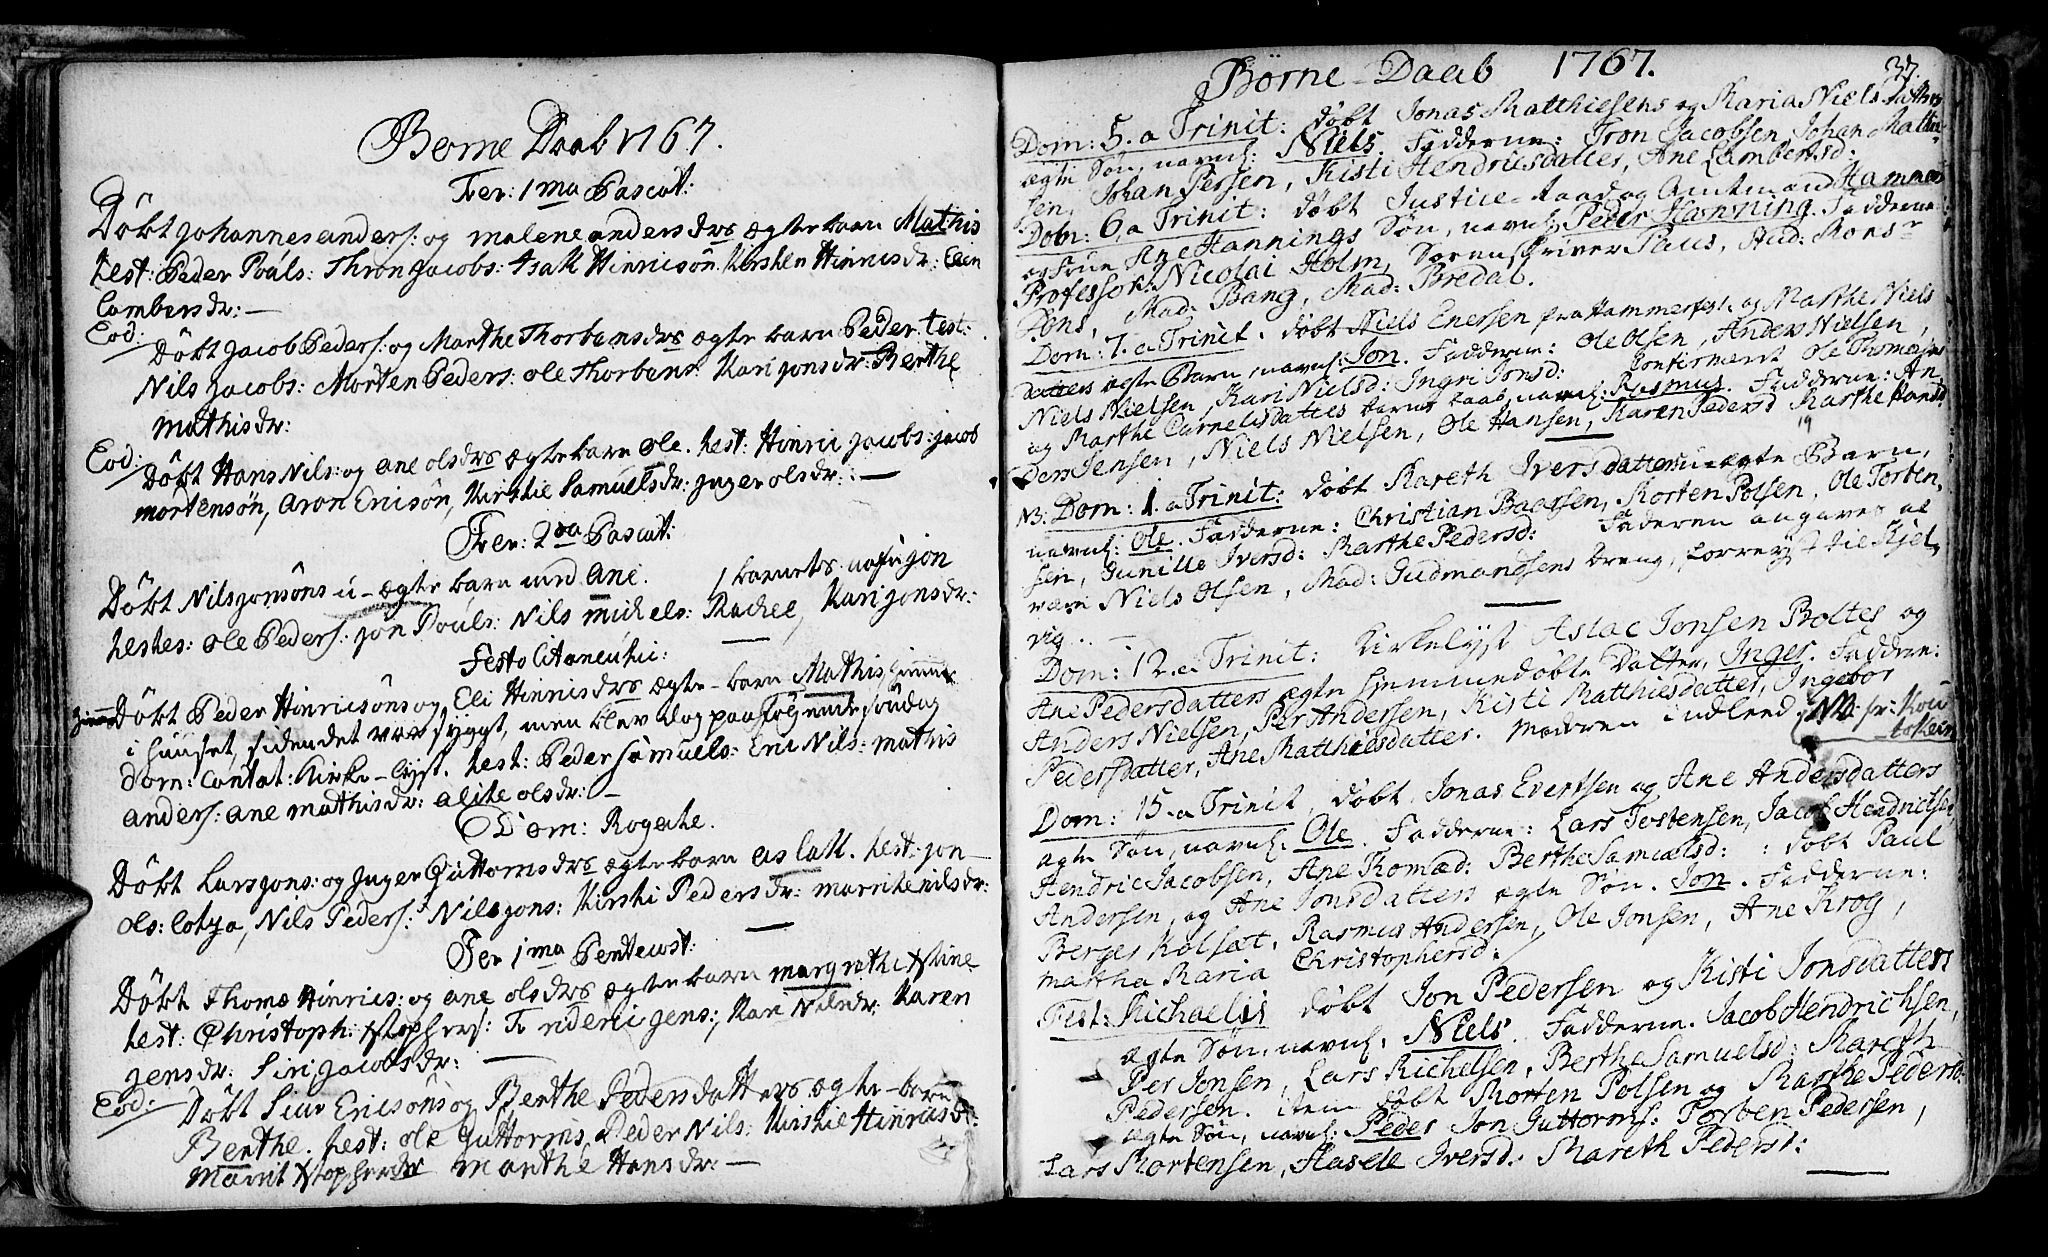 Börne Daab 1767.
Fer: 1ma Pascat:
Döbt Johannes anders: og malene anders drs ægte barn Mathis
test: Peder Poúls: Thron Jacobs: Isak Hinricsön. Kirsten Hinricsdr: Elen
Lambersdr: —
Eod: Döbt Jacob Peders: og Marthe Thorbens drs ægte barn Peder. test:
Nils Jacobs: Morten Peders: ole Thorbens: Kari jonsdr: Berthe
mathisdr:
Eod: Döbt Hans Nils: og ane ols drs ægte barn ole. test: Hinric jacobs: jacob
mortensön, Aron Ericsön, Kirstie Samuelsdr: Jnger olsdr: —
Fer: 2da Pascat:
Döbt Nils jonsöns ú-ægte barn med Ane. / barnets nafn jon
testes: ole Peders: jon Poúls: Nils michels: Rachel, Kari jonsdr:
Festo Litaneutic:
Döbt Peder Hinricsöns og Eli Hinrics drs ægte-barn Mathis hiemme
i húuset, siden det var sygt, men blev dog paa fölgende söndag
Dom: Cantat: Kirke-lyst. test: Peder Samuels: Eric Nils: mathis
anders: ane mathisdr: alite olsdr: —
Dom: Rogate.
Döbt Lars jons: og Jnger Gúttorms drs ægte barn aslak. test: jon
ols: Nils Peders: Nils jons: Kirsti Pedersdr: marrite nilsdr:
Fer 1ma Pentecost:
Döbt Thomas Hinrics: og ane ols drs ægte barn margrethe Xstine
test: Christoph: Xstophers: Frideric jens: Kari Nilsdr: Karen
jensdr: Siri jacobsdr: —
Eod: Döbt Siur Ericsöns og Berthe Pedersdatters ægte-barn
Berthe. test: ole Guttorms, Peder Nils: Kirstie Hinricsdr:
Marrit Xstophersdr marthe Hansdr: —
Börne-Daab 1767. 37.
Dom: 5. a Trinit: döbt Jonas Matthiesens og Maria Niels datters
ægte Sön, navnl: Niels. Fadderne: Tron Jacobsen, Johan Mathie-
sen, Johan Persen, Kisti Hendricsdatter, Ane Lambertsd:
Dom: 6. a Trinit: döbt Justice-Raad og Amtmand Hammer
og Frue Ane Hannings Sön, navnl: Peder Hanning. Fadderne
Professor: Nicolai Holm, Sorenskriver Paus, Monsr
Pons, Mad: Bang, Mad: Bredal.
Dom: 7. a Trinit. döbt Niels Enersen fra Hammerfest og Marthe Niels
datters ægte Barn, navnl: Jon. Fadderne: Ole Olsen, Anders Nielsen,
Niels Nielsen, Kari Nielsd: Ingri Jonsd: Confirmeret Ole Thomesens
og Marthe Cornelisdatters barns daab, navnl: Rasmus. Fadderne: An
ders Jensen, Niels Nielsen, Ole Hansen, Karen Pedersd Marthe Hansd
NB: Dom: 1. a Trinit: döbt Mareth Iversdatters uægte Barn,
navnl: Ole. Fadderne: Christian Baarsen, Morten Polsen, Ole Torben-
sen, Gunille Iversd: Marthe Pedersd: Faderen angaves at
være Niels Olsen, Mad: Gudmandsens dreng, forrejst til Kjel-
vig. —
Dom: 12. a Trinit: Kirkelyst Aslac Jonsen Boltes og
Ane Pedersdatters ægte hjemmedöbte Datter, Inger. Faddrene:
Anders Nielsen, Per Andersen, Kisti Matthiesdatter, Ingebor
Pedersdatter, Ane Matthiesdatter. Moderen indleed NB: fr: Kou
tokein
Dom: 15. a Trinit, döbt Jonas Evertsen og Ane Andersdatters
ægte Sön, navnl: Ole. Fadderne: Lars Tostensen, Jacob Hendrichsen
Hendric Jacobsen, Ane Thomæd: Berthe Samuelsd: : döbt Paul
Andersen, og Ane Jonsdatters ægte Sön. Jon. Fadderne:
Berger Kolsæt, Rasmus Andersen, Ole Jonsen, Ane Krog,
Martha Maria Christophersd:
Fest: Michaelis döbt Jon Pedersen og Kisti Jonsdatters
ægte Sön, navnl. Niels. Fadderne. Jacob Hendrichsen,
Per Jonsen, Lars Michelsen, Berthe Samuelsd: Mareth
Pedersen. item döbt Morten Polsen og Marthe Pedersd:
ægte Sön, navnl: Peder Jon Guttorms: Torben Pedersen,
Lars Mortensen, Iversd: Mareth Pedersd: